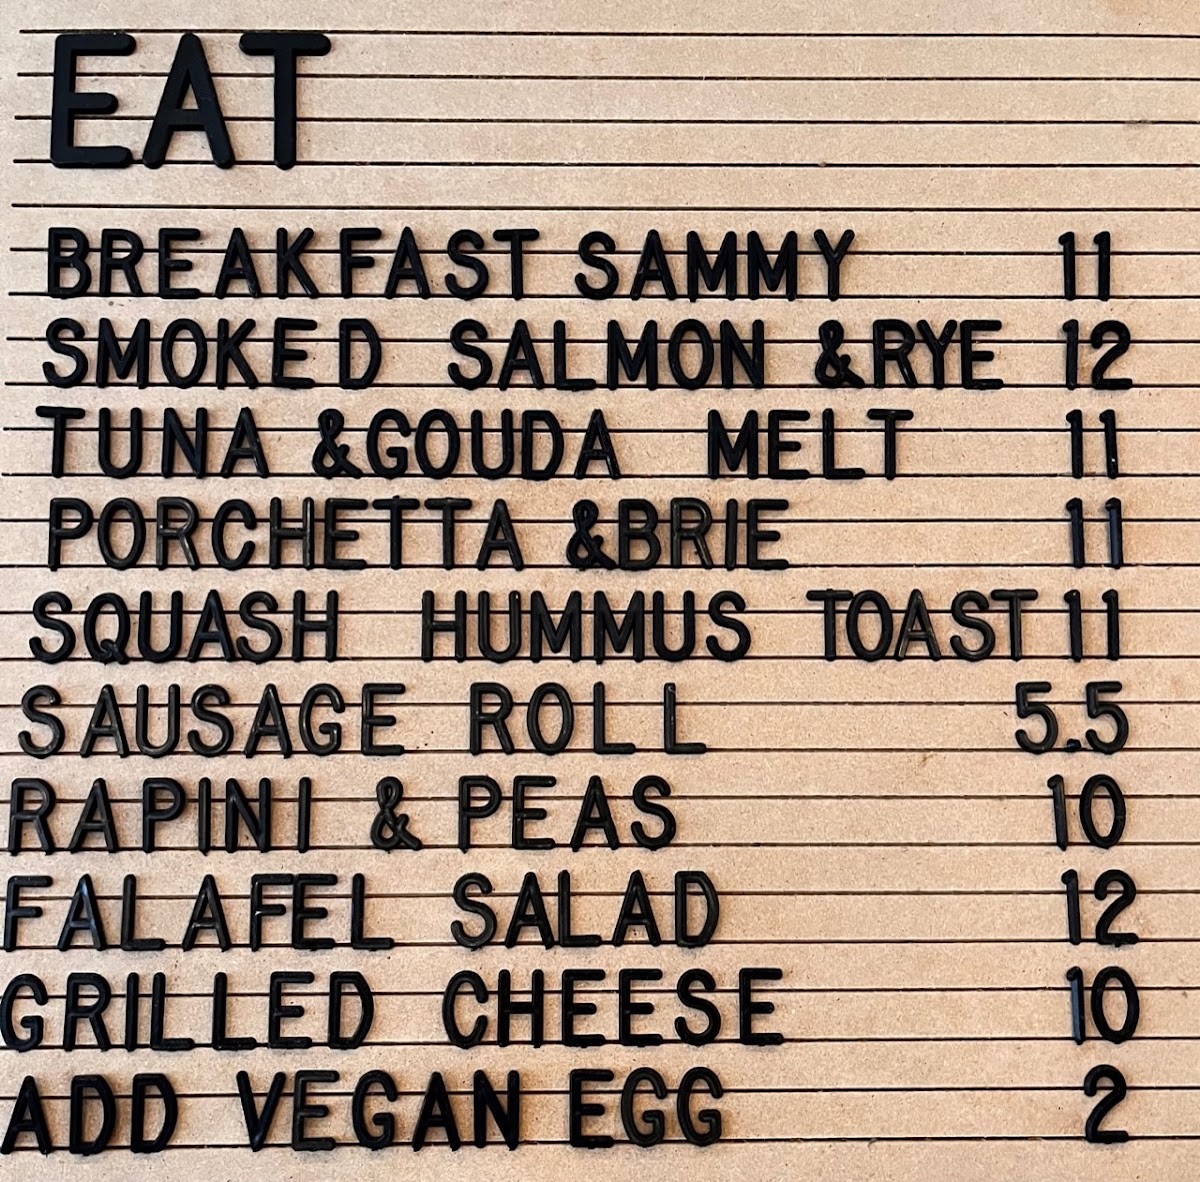 EAT
BREAKFAST SAMMY 11
SMOKED SALMON &RYE 12
TUNA &GOUDA MELT 11
PORCHETTA &BRIE 11
SQUASH HUMMUS TOAST 11
SAUSAGE ROLL 5.5
RAPINI & PEAS 10
FALAFEL SALAD 12
GRILLED CHEESE 10
ADD VEGAN EGG 2